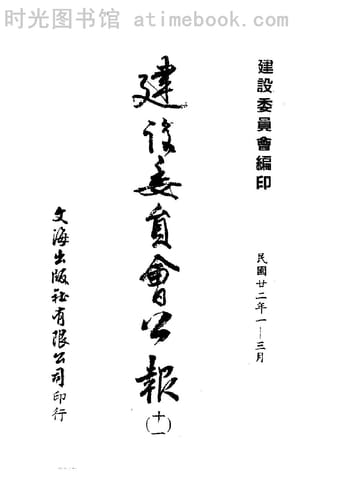 时光图书馆 www.atimebook.com
建設委員會編印
民國廿二年一—三月
建設委員會公報(十一)
文海出版社有限公司印行